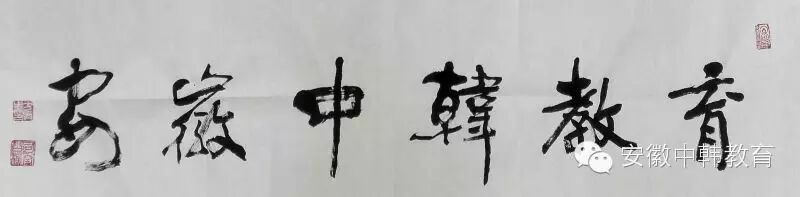 安徽中韓教育
安徽中韩教育